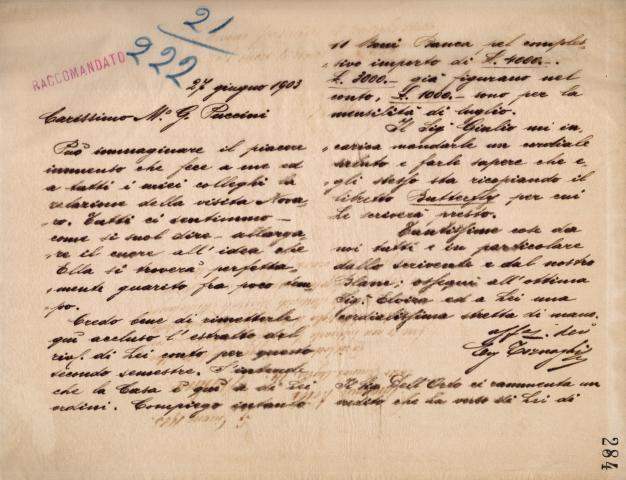 21
222
RACCOMANDATO
27 giugno 1903
Carissimo Mo G. Puccini
Può immaginare il piacere
immenso che fece a me ed
a tutti i miei colleghi la
relazione della visita Nova-
ro. Tutti ci sentimmo -
come si suol dire - allarga-
re il cuore all'idea che
Ella si troverà perfetta-
mente guarito fra poco tem-
po.
Credo bene di rimetterle
quì accluso l'estratto del
di Lei conto per questo
secondo semestre. S'intende
che la Casa è quì a di Lei
ordini. Compiego intanto
11 Buoni Banca pel comples-
sivo importo di £. 4000.-.
£. 3000.- già figurano nel
conto, £. 1000.- sono per la
mensilità di luglio.
Il Sig. Giulio mi in-
carica mandarle un cordiale
saluto e farle sapere che e-
gli stesso sta ricopiando il
libretto Butterfly per cui
Le scriverà presto.
Tantissime cose da
noi tutti e in particolare
dallo scrivente e dal nostro
Blanc: ossequi all'ottima
Sig. Elvira ed a Lei una
cordialissima stretta di mano.
affez. dei
Tornaghi
Il Sig. Dell'Orto ci rammenta un
credito che ha verso di Lei di
284